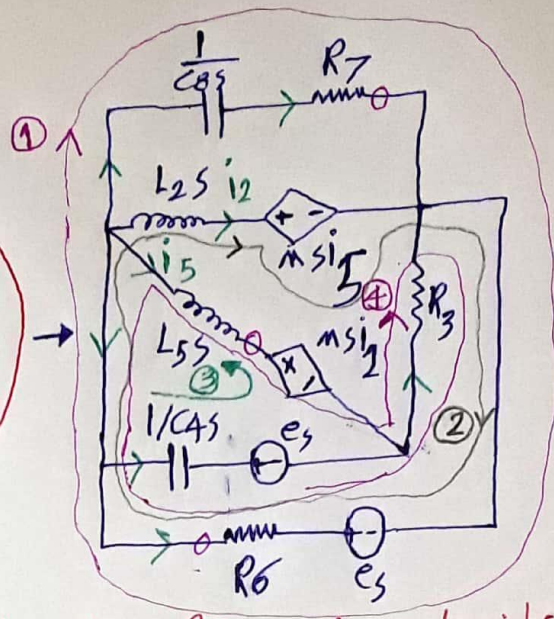 1/C8S R7
①
L2S i2 + -
MSi5
i5
④ R3
L5S MSi2
+ -
③
1/C4S es ②
R6 es